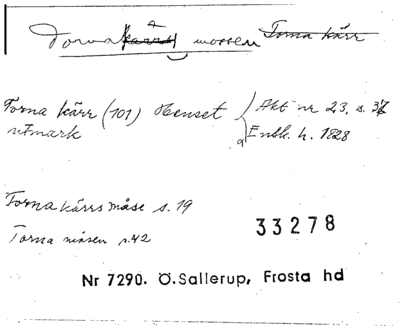 Torna kärrs mossen Torna kärr
Torna kärr (101) Utmark Akt nr 23, s. 37
Ensk. h. 1828
Torna kärrs måse s. 19
Torna mosen s. 42
33278
Nr 7290. Ö.Sallerup, Frosta hd